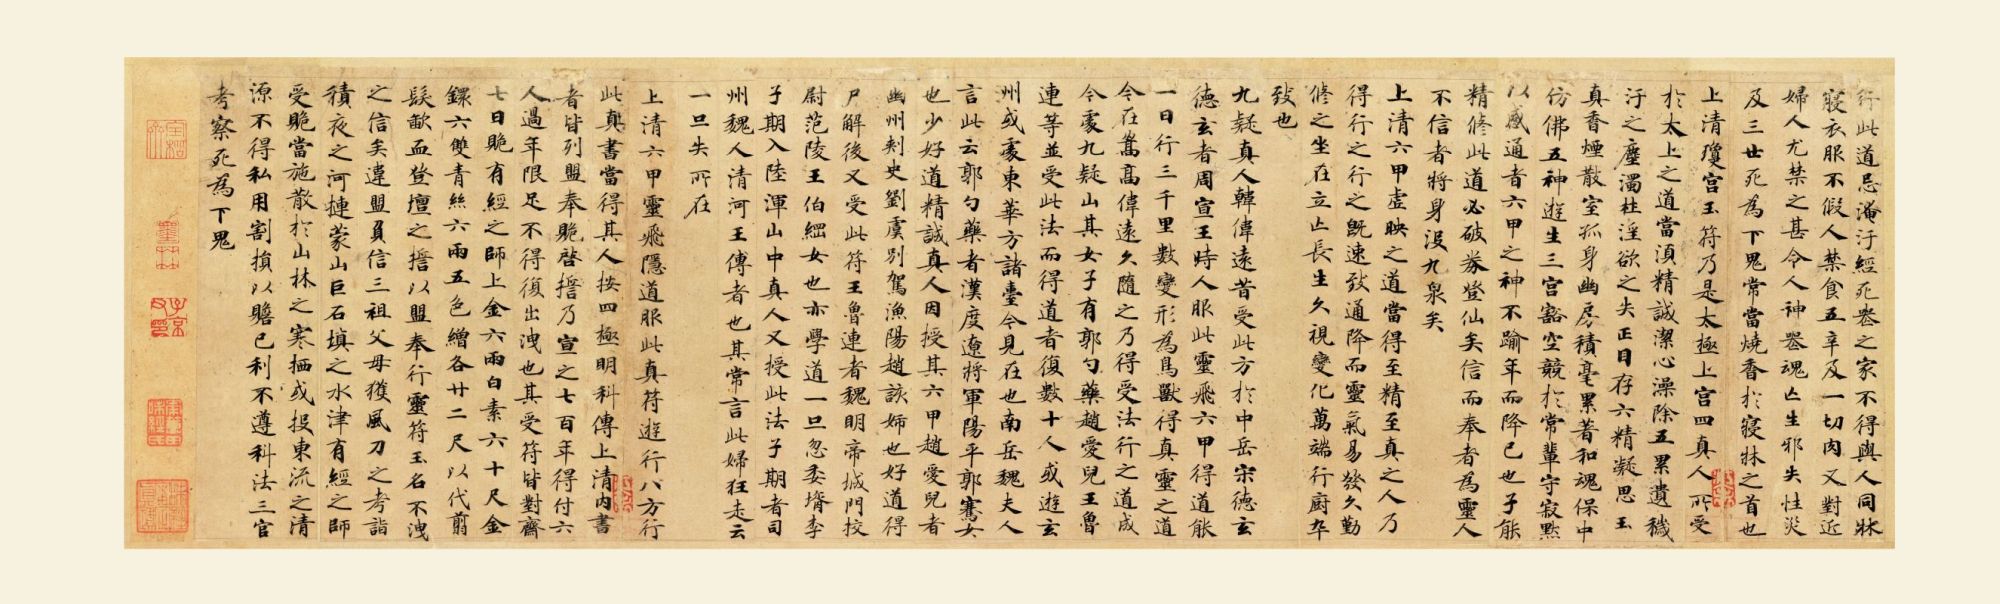 行此道忌淹汙經死喪之家不得與人同牀
寢衣服不假人禁食五辛及一切肉又對近
婦人尤禁之甚令人神喪魂亡生邪失性災
及三世死為下鬼常當燒香於寢牀之首也
上清瓊宮玉符乃是太極上宮四真人所受
於太上之道當須精誠潔心澡除五累遺穢
汙之塵濁杜淫欲之失正目存六精凝思玉
真香煙散室孤身幽房積毫累著和魂保中
仿佛五神遊生三宮豁空競於常輩守寂默
以感通者六甲之神不踰年而降已也子能
精修此道必破券登仙矣信而奉者為靈人
不信者將身沒九泉矣
上清六甲虛映之道當得至精至真之人乃
得行之行之既速致通降而靈氣易發久勤
修之坐在立亡長生久視變化萬端行廚卒
致也
九疑真人韓偉遠昔受此方於中岳宋德玄
德玄者周宣王時人服此靈飛六甲得道能
一日行三千里數變形為鳥獸得真靈之道
今在嵩高偉遠久隨之乃得受法行之道成
今處九疑山其女子有郭勺藥趙愛兒王魯
連等並受此法而得道者復數十人或遊玄
州或處東華方諸臺今見在也南岳魏夫人
言此云郭勺藥者漢度遼將軍陽平郭騫女
也少好道精誠真人因授其六甲趙愛兒者
幽州刺史劉虞別駕漁陽趙該姊也好道得
尸解後又受此符王魯連者魏明帝城門校
尉范陵王伯綱女也亦學道一旦忽委壻李
子期入陸渾山中真人又授此法子期者司
州魏人清河王傳者也其常言此婦狂走云
一旦失所在
上清六甲靈飛隱道服此真符遊行八方行
此真書當得其人按四極明科傳上清內書
者皆列盟奉贶啓擔乃宣之七百年得付六
人過年限足不得復出洩也其受符皆對齋
七日贶有經之師上金六兩白素六十尺金
鐶六雙青絲六兩五色繒各廿二尺以代翦
髮歃血登壇之擔以盟奉行靈符玉名不洩
之信矣違盟負信三祖父母獲風刀之考詣
積夜之河摙蒙山巨石填之水津有經之師
受贶當施散於山林之寒栖或投東流之清
源不得私用割損以贍己利不遵科法三官
考察死為下鬼